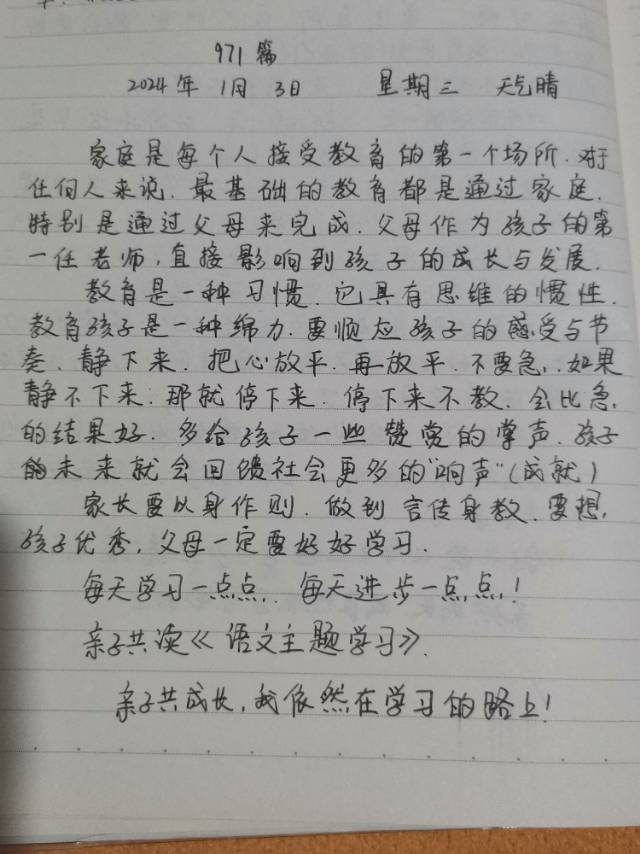 971篇
2024年 1月 3日 星期三 天气晴
家庭是每个人接受教育的第一个场所.对于
任何人来说.最基础的教育都是通过家庭.
特别是通过父母来完成.父母作为孩子的第
一任老师,直接影响到孩子的成长与发展.
教育是一种习惯.它具有思维的惯性.
教育孩子是一种绵力.要顺应孩子的感受与节
奏.静下来.把心放平.再放平.不要急..如果
静不下来.那就停下来.停下来不教.会比急.
的结果好.多给孩子一些赞赏的掌声.孩子
的未来就会回馈社会更多的"响声"(成就)
家长要以身作则.做到言传身教.要想,
孩子优秀,父母一定要好好学习.
每天学习一点点..每天进步一点点!
亲子共读《语文主题学习》.
亲子共成长,我依然在学习的路上!